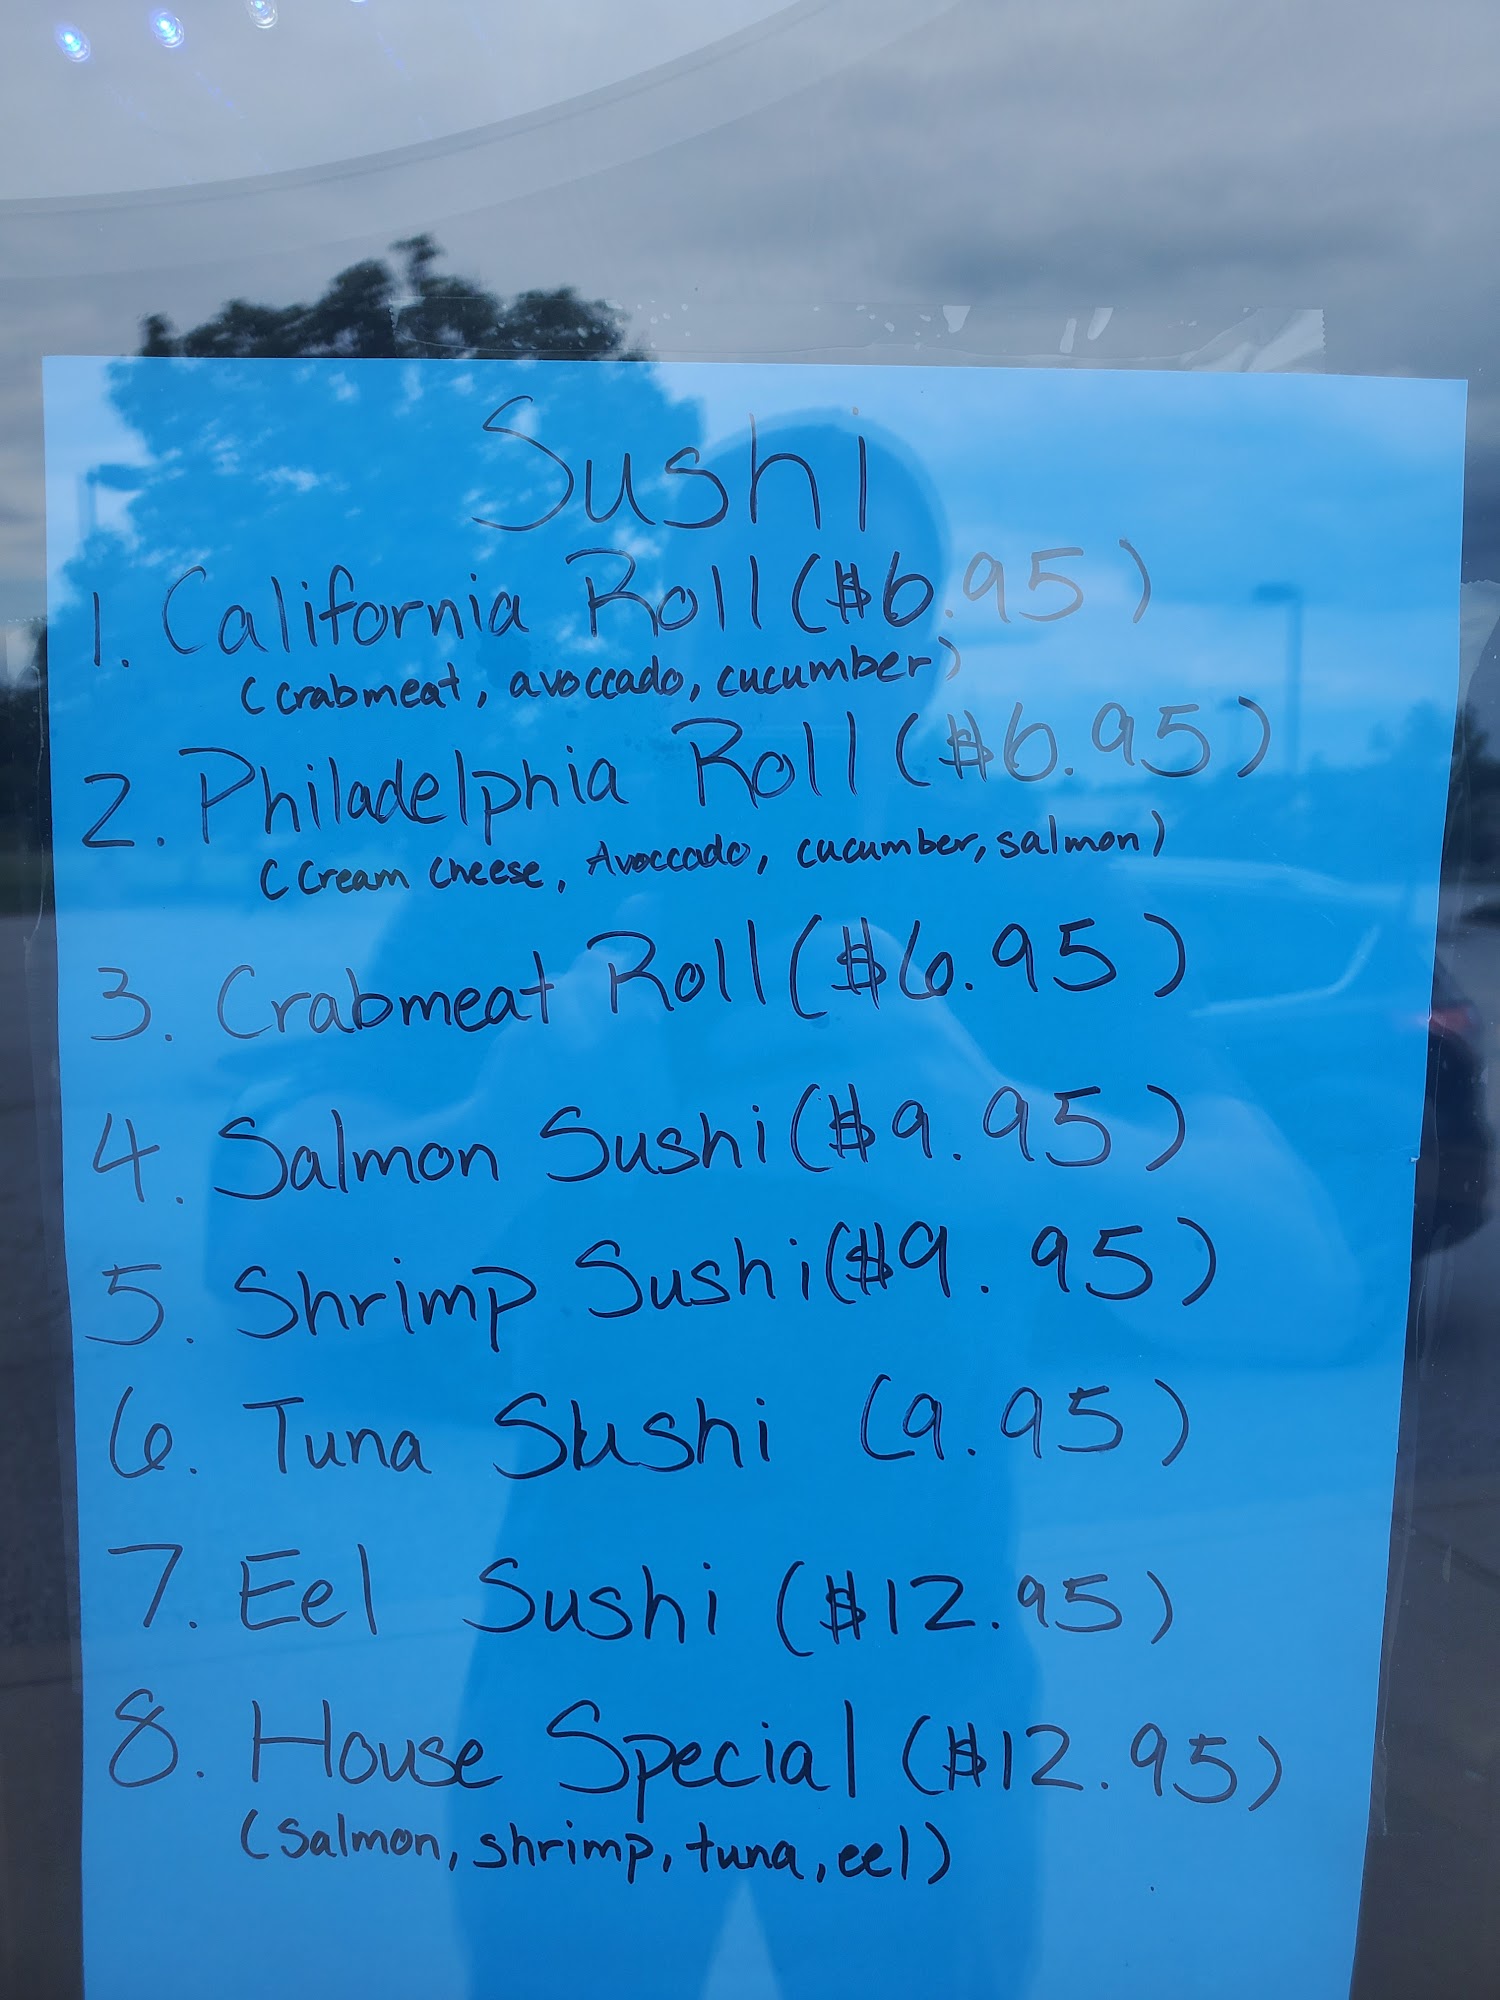 Sushi
1. California Roll ($6.95)
(crabmeat, avoccado, cucumber)
2. Philadelphia Roll ($6.95)
(Cream Cheese, Avoccado, cucumber, salmon)
3. Crabmeat Roll ($6.95)
4. Salmon Sushi ($9.95)
5. Shrimp Sushi ($9.95)
6. Tuna Sushi (9.95)
7. Eel Sushi ($12.95)
8. House Special ($12.95)
(salmon, shrimp, tuna, eel)